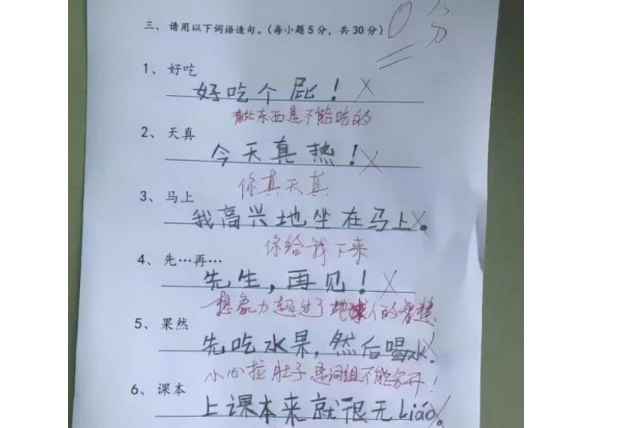 三、请用以下词语造句。(每小题5分，共30分)
0分
1、好吃
好吃个屁！
有些东西是不能吃的
2、天真
今天真热！
你真天真
3、马上
我高兴地坐在马上。
你给我下来
4、先…再…
先生，再见！
想象力超过了地球人的智慧
5、果然
先吃水果，然后喝水！
小心拉肚子 是词组不能分开！
6、课本
上课本来就很无liáo。